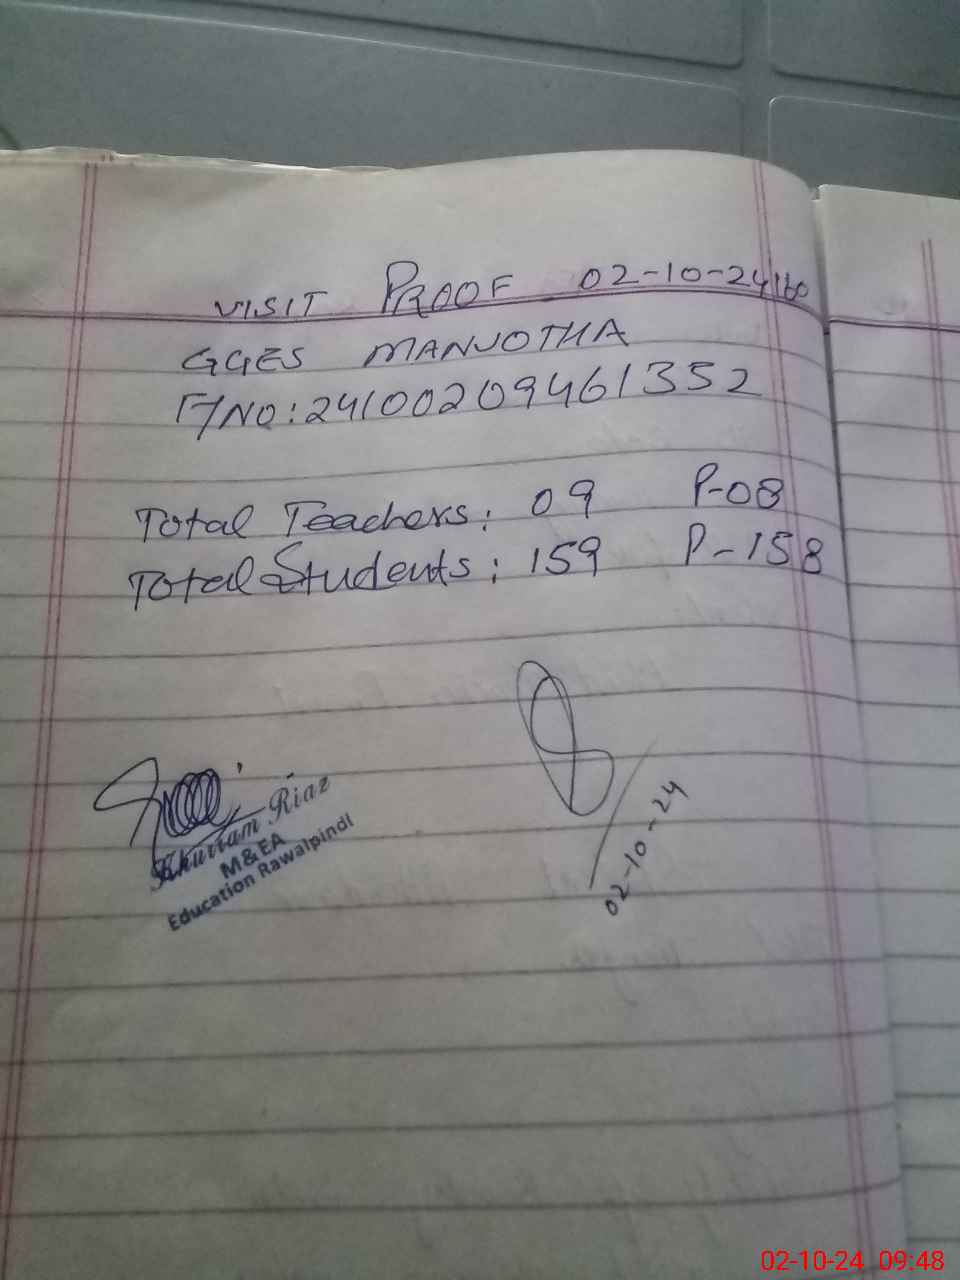 VISIT PROOF 02-10-24
GGES MANJOTHA
F/NO: 24100209461352
Total Teachers: 09 P-08
Total Students: 159 P-158
Khurram Riaz
M&EA
Education Rawalpindi
02-10-24
02-10-24 09:48